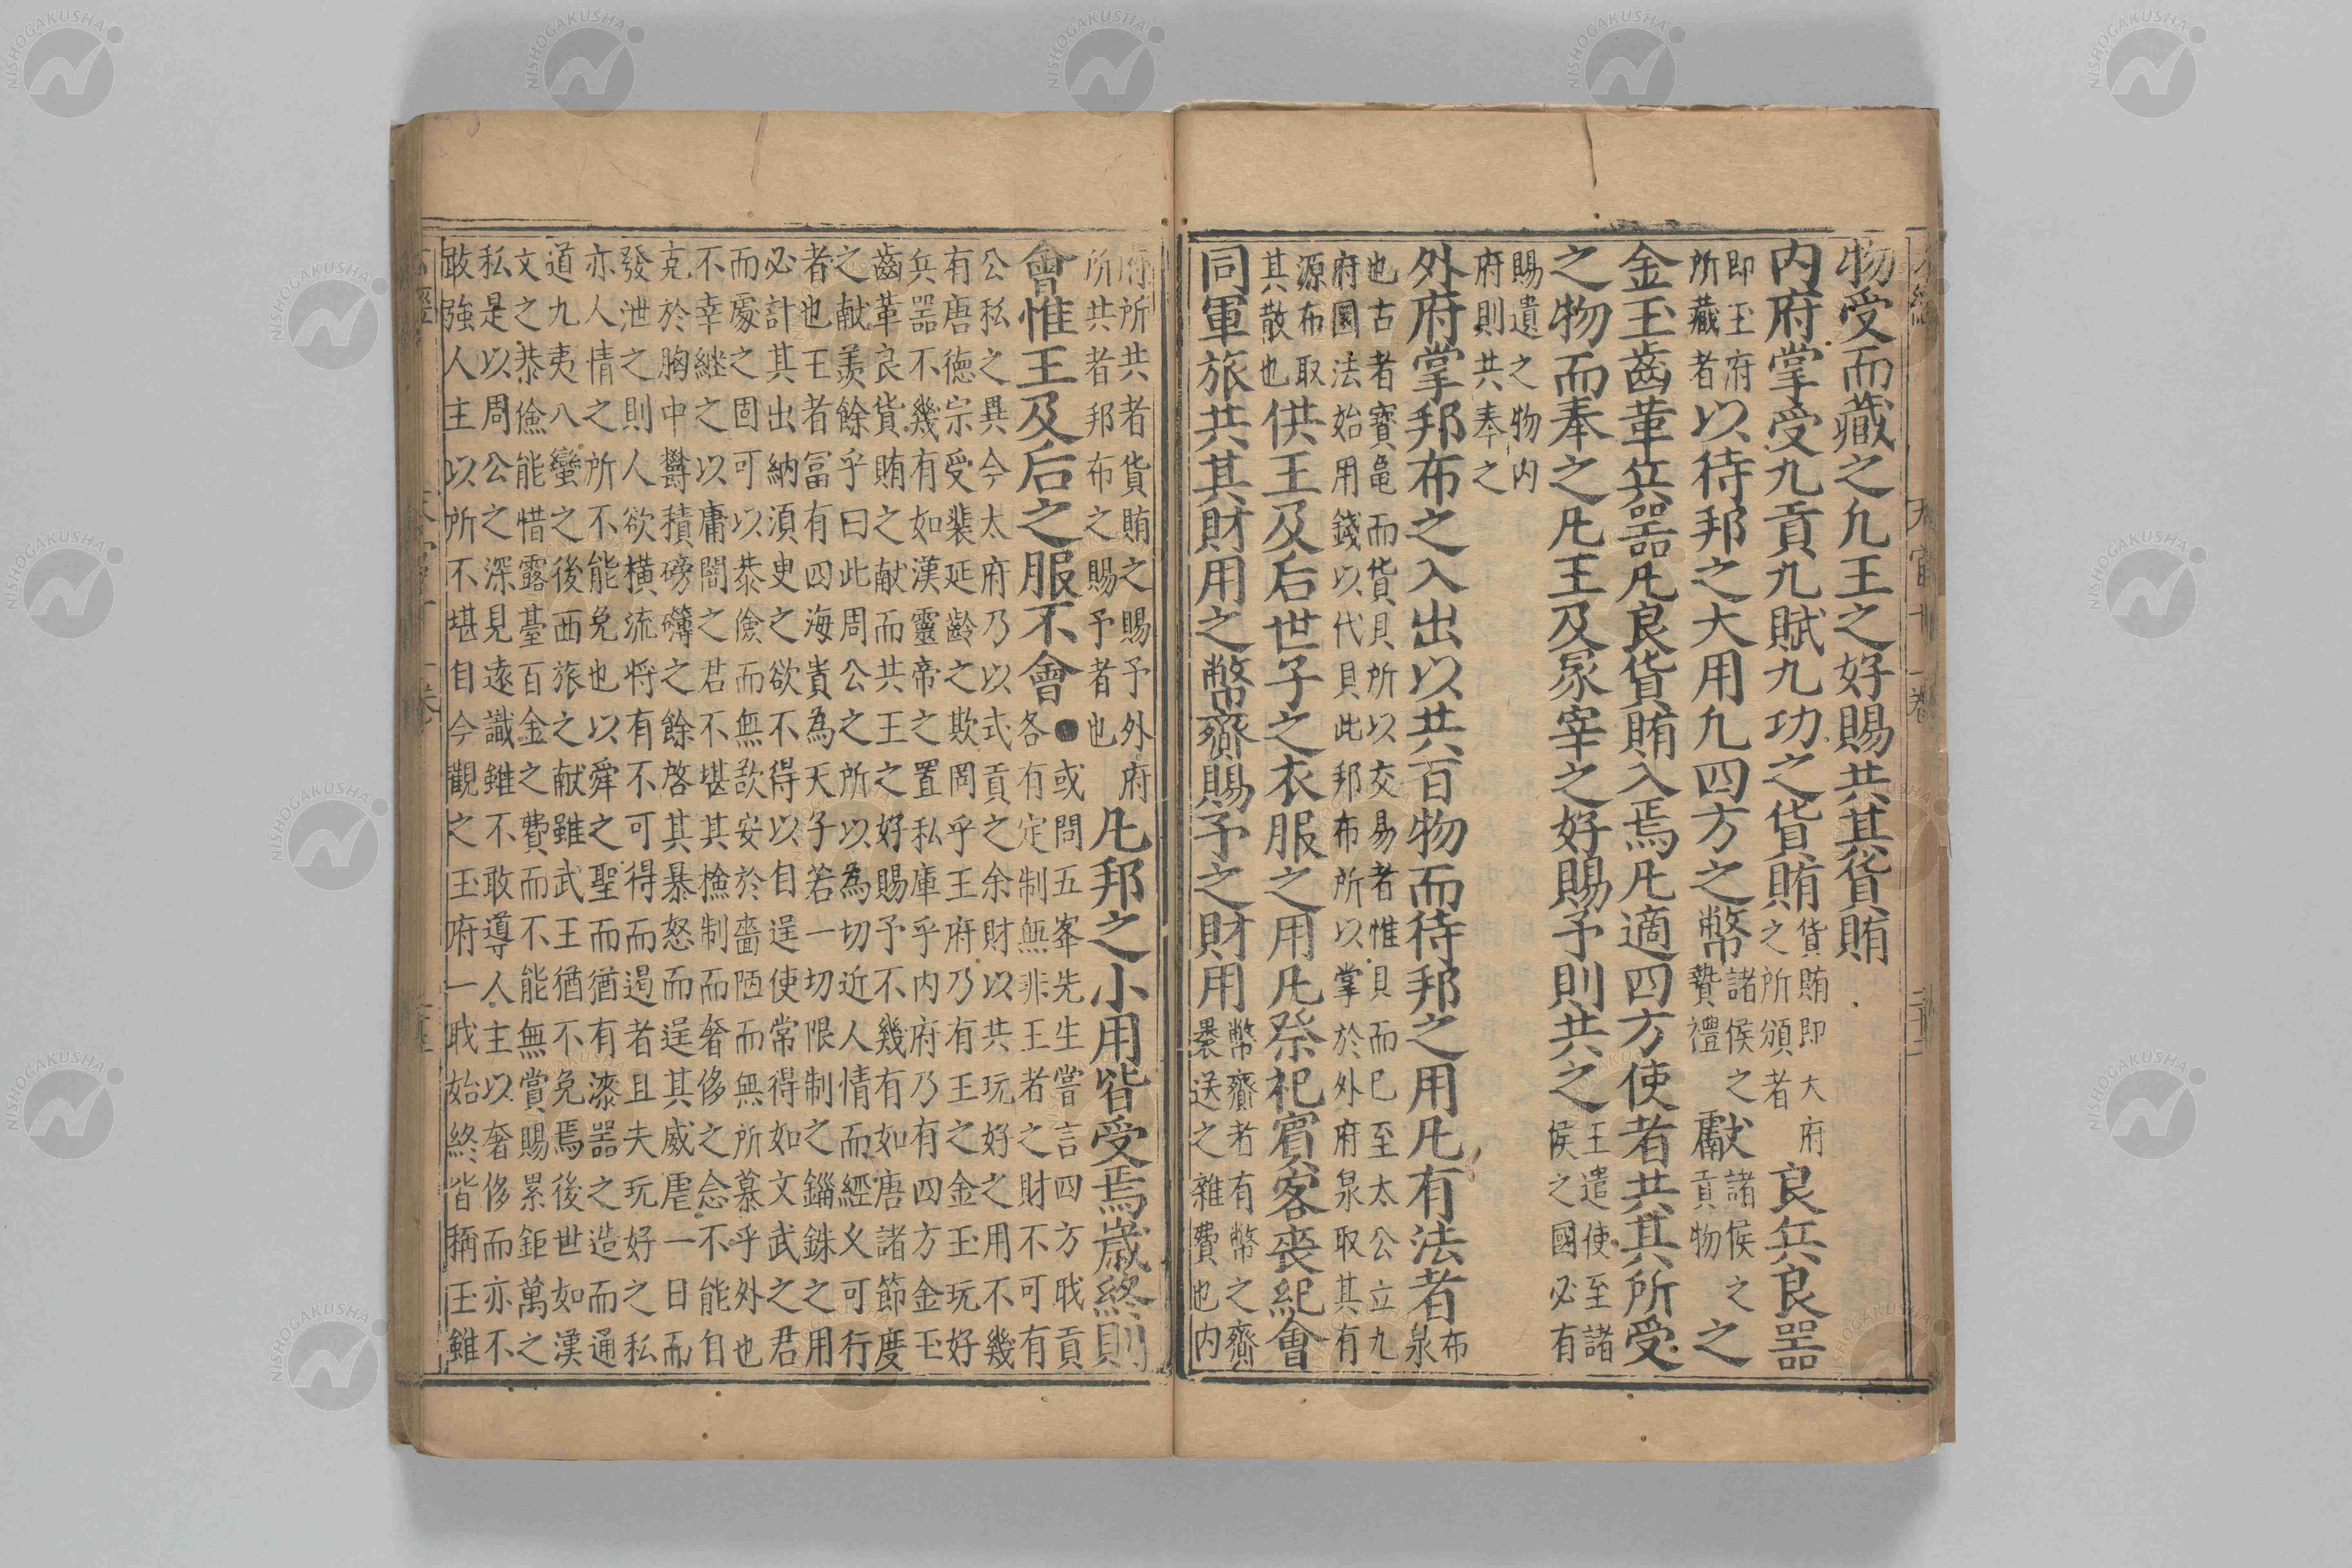 物受而藏之凡王之好賜共其貨賄
内府掌受九貢九賦九功之貨賄貨賄即大府
之所頒者良兵良器
即玉府
所藏者以待邦之大用凡四方之幣諸侯之
贄禮獻諸侯之
貢物之
金玉齒革兵器凡良貨賄入焉凡適四方使者共其所受
之物而奉之凡王及冢宰之好賜予則共之王遣使至諸
侯之國必有
賜遺之物内
府則共奉之
外府掌邦布之入出以共百物而待邦之用凡有法者布
泉
也古者寳龜而貨貝所以交易者惟貝而已至太公立九
府圜法始用錢以代貝此邦布所以掌於外府泉取其有
源布取
其散也供王及后世子之衣服之用凡祭祀賓客喪紀會
同軍旅共其財用之幣齎賜予之財用幣齎者有幣之齎
曩送之雜費也内
府所共者貨賄之賜予外府
所共者邦布之賜予者也凡邦之小用皆受焉歲終則
會惟王及后之服不會●或問五峯先生嘗言四方職貢
各有定制無非王者之財不可有
公私之異今太府乃以式貢之余財以共玩好之用不幾
有唐德宗受裴延齡之欺罔乎王府乃有王之金玉玩好
兵器不幾有如漢靈帝之置私庫乎内府乃有四方金玉
齒革良貨賄之献而共王之好賜予不幾有如唐諸節度
之献羨餘乎曰此周公之所以為切近人情而經乂可行
者也王者冨有四海貴為天子若一切限制之錙銖之用
必計其出納湏史之欲不得以自逞使常得如文武之君
而處之固可以恭儉而無歉安於嗇陋而無所慕乎外也
不幸継之以庸闇之君不堪其檢制而奢侈之念不能自
克於胸中欝積磅礴之餘啓其暴怒而逞其威虐一日而
發泄之則人欲横流将有不可得而遏者且夫玩好之私
亦人情之所不能免也以舜之聖而猶有漆器之造而通
道九夷八蠻之後西旅之献雖武王猶不免焉後世如漢
文之恭儉能惜露臺百金之費而不能無賞賜累鉅萬之
私是以周公之深見遠識雖不敢導人主以奢侈而亦不
敢強人主以所不堪自今觀之玉府一職始終皆稱玉雖